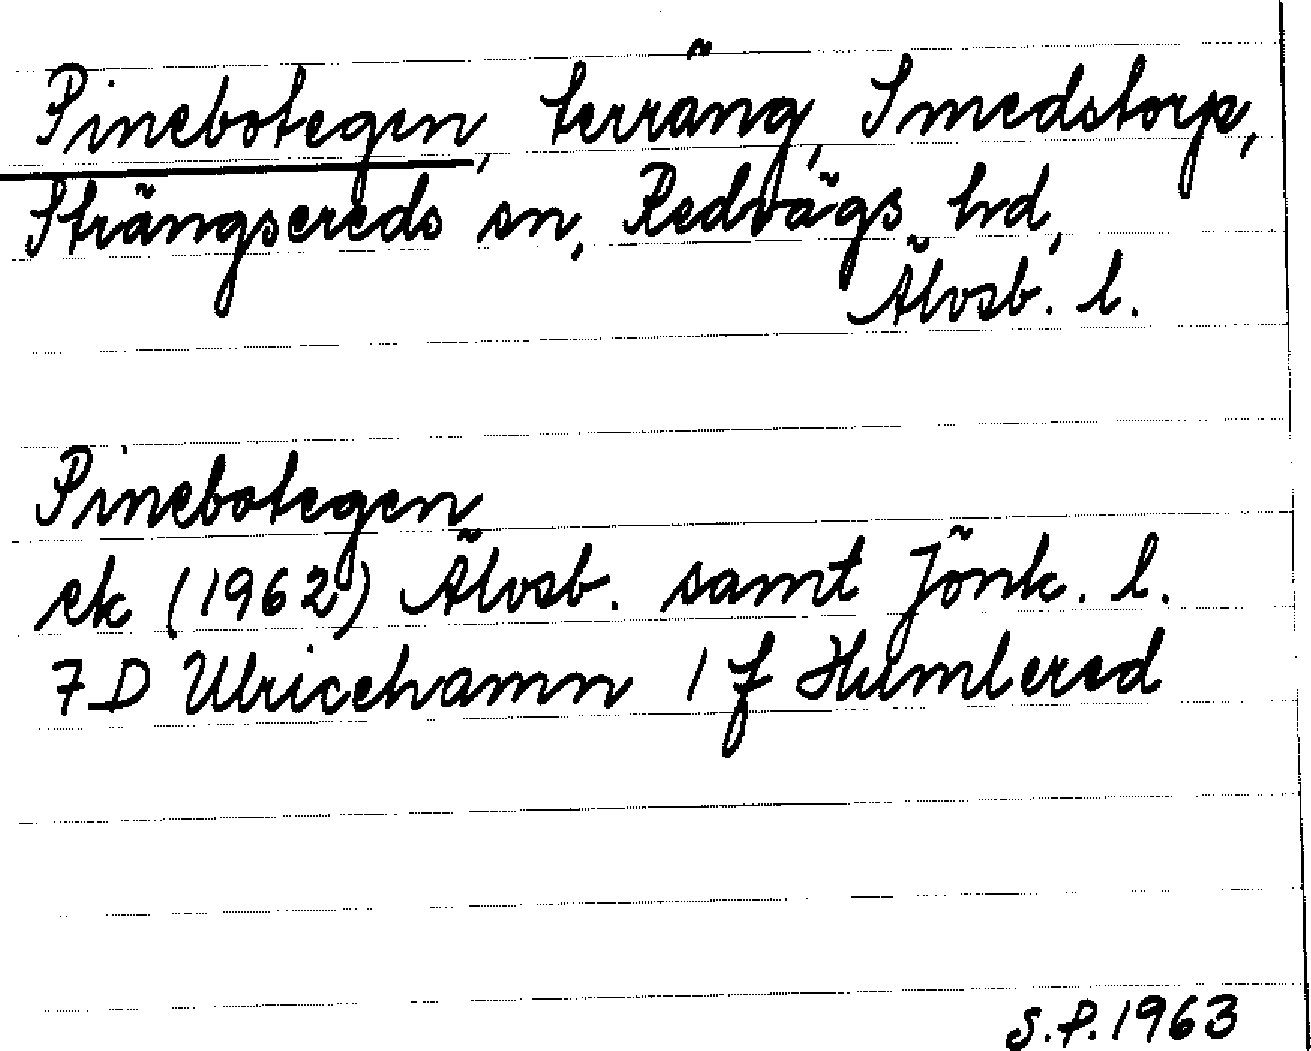 Pinebotegen, terräng, Smedstorp,
Strängsereds sn, Redvägs hd,
Älvsb. l.
Pinebotegen
ek (1962) Älvsb. samt Jönk. l.
7 D Ulricehamn 1 f Humlered
S.P. 1963